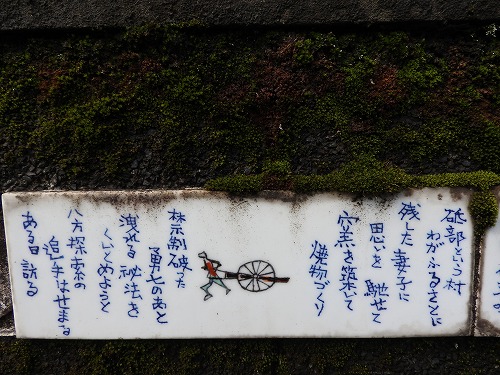 砥部という村
わがふるさとに
残した妻子に
思いを馳せて
窯を築いて
焼物づくり
禁制破った
勇吉のあと
洩れる秘法を
くいとめようと
八方探索の
追手はせまる
ある日訪る